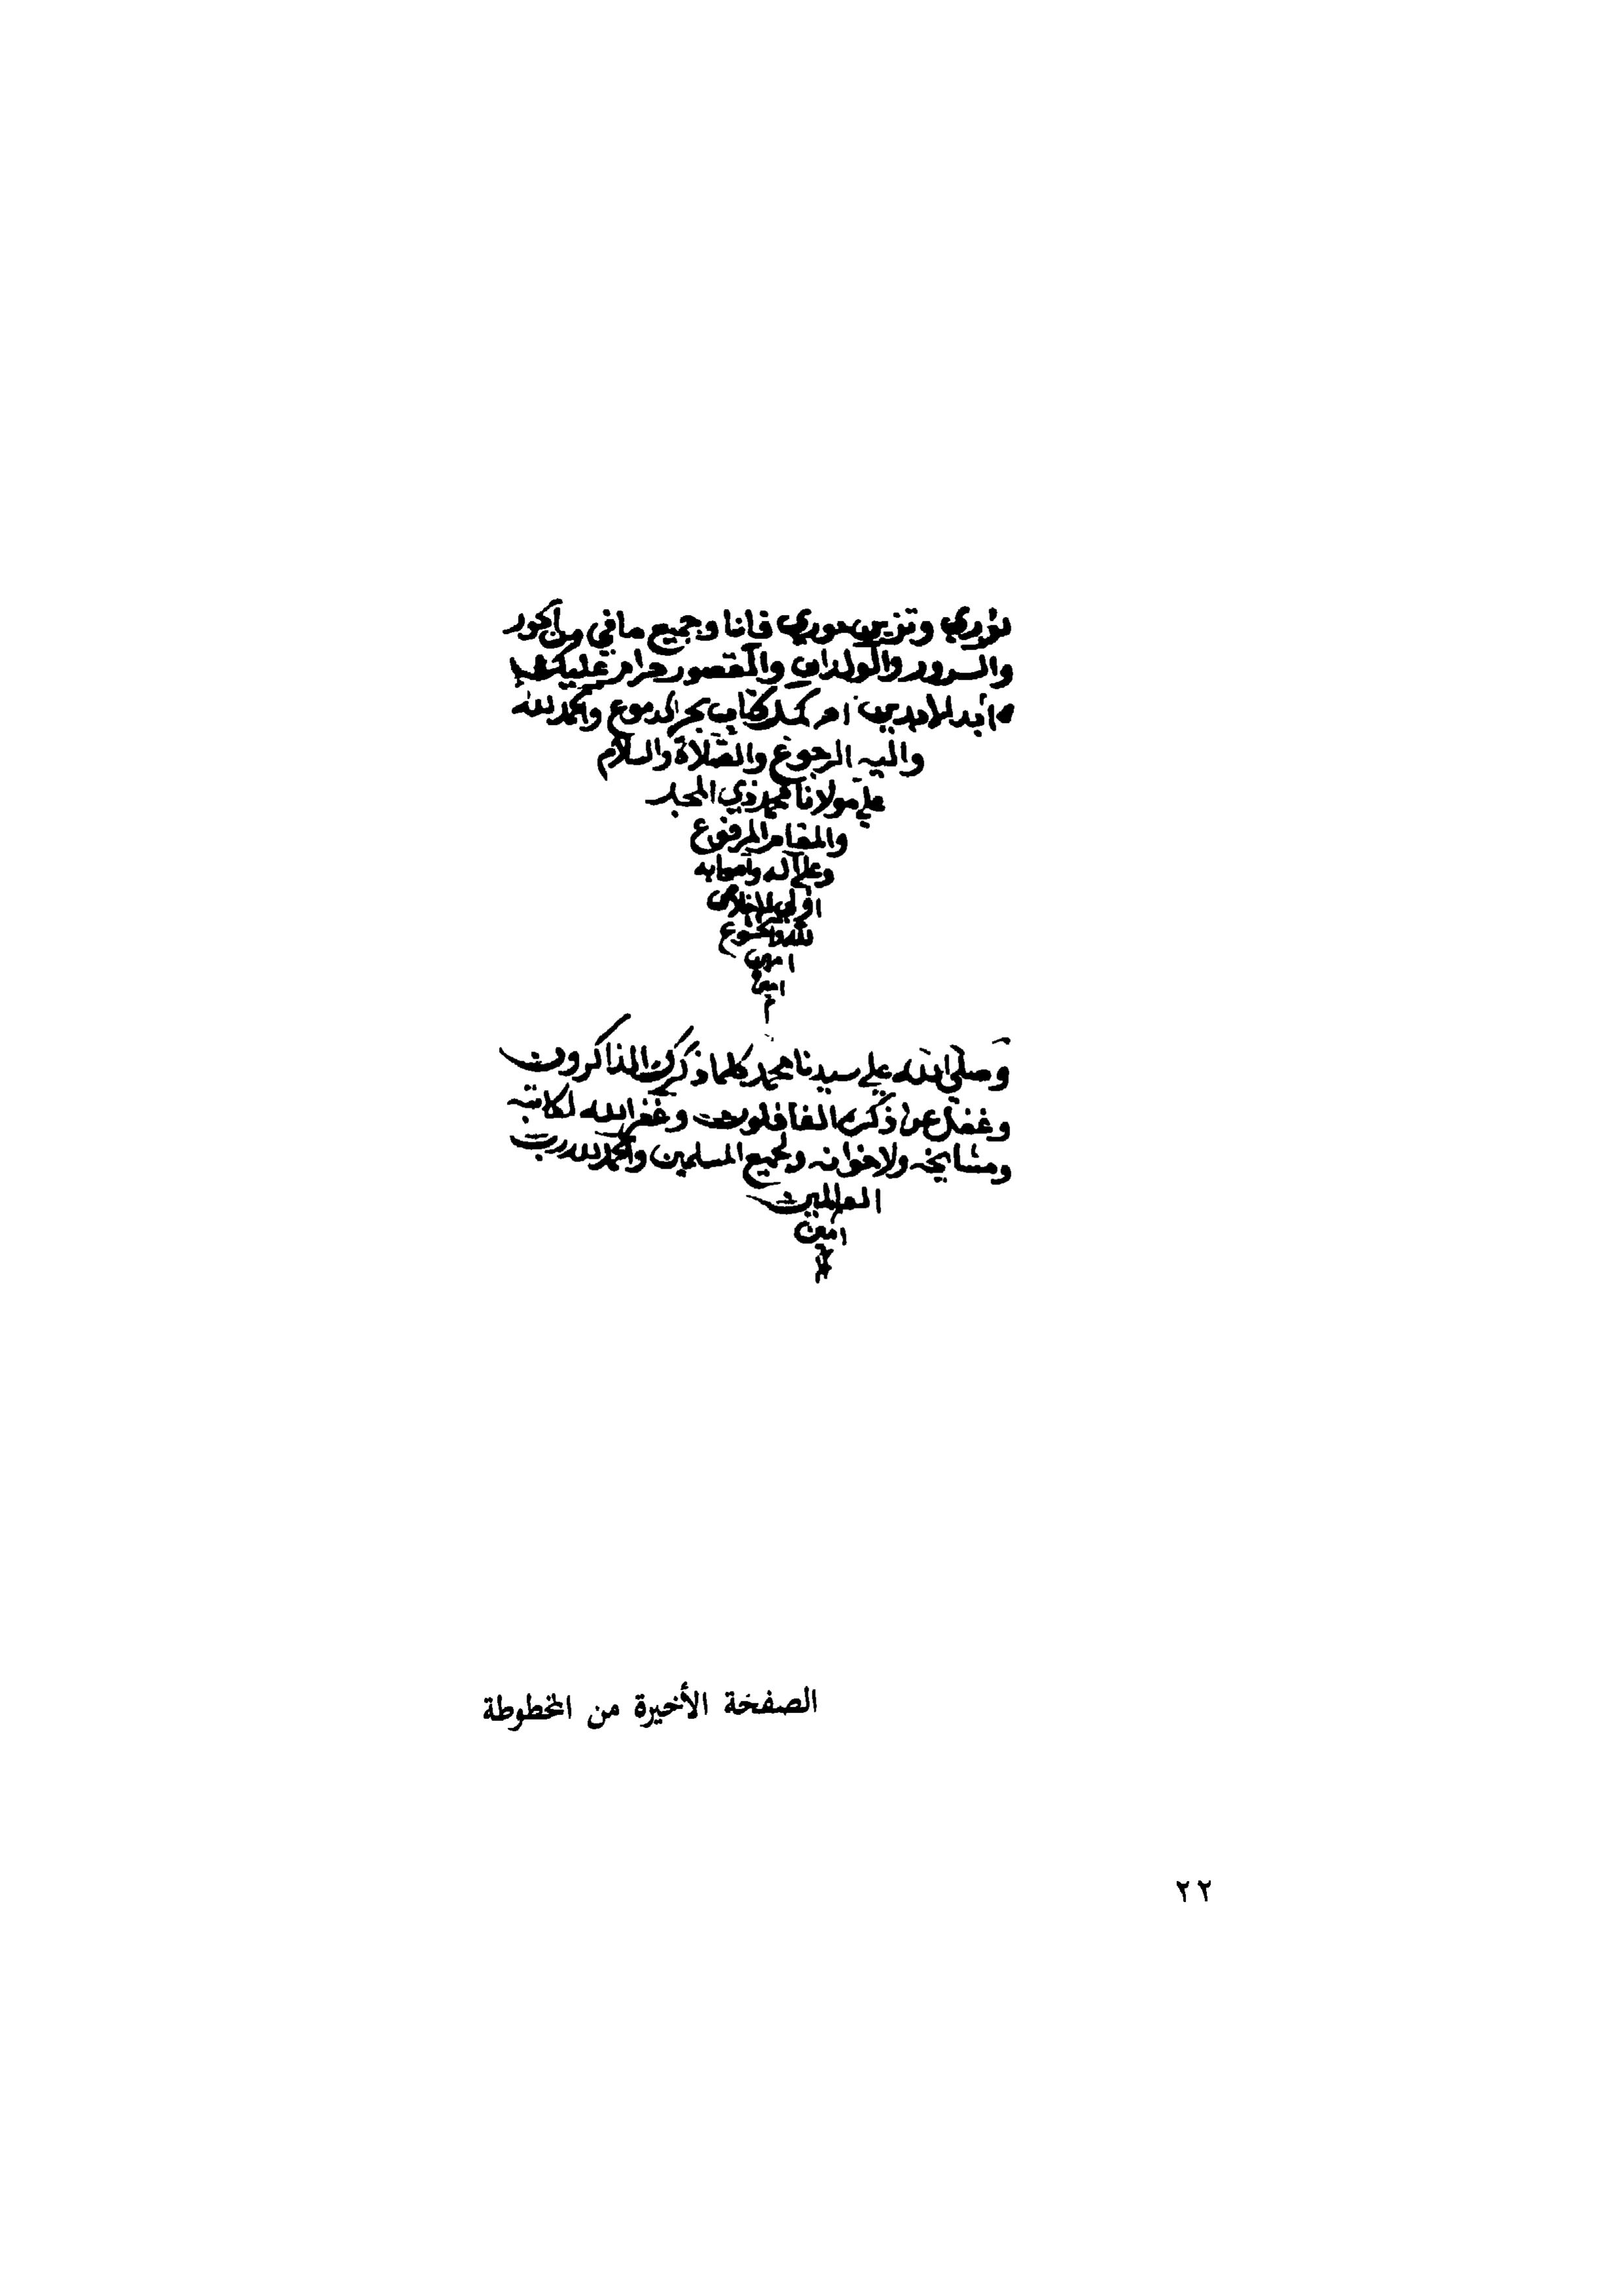 وتزين فانا وجميع ما في من الحور
والسرور والولدان والقصور حرام عليك
ابد الابدين ام كمل كتاب بحر الدموع والحمد لله
واليه الرجوع والصلاة والسلام
علي مولانا محمد ذي المجد
والمقام المرفوع
وعلي آله واصحابه
اولي الاخلاص
لله والخشوع
امين
امين
م
وصلي الله علي سيدنا محمد كلما ذكرك الذاكرون
وغفل عن ذكرك الغافلون وغفر الله لكاتبه
ومشايخه ولاخوانه ولجميع المسلمين والحمد لله رب
العالمين
امين
الصفحة الأخيرة من المخطوطة
٢٢